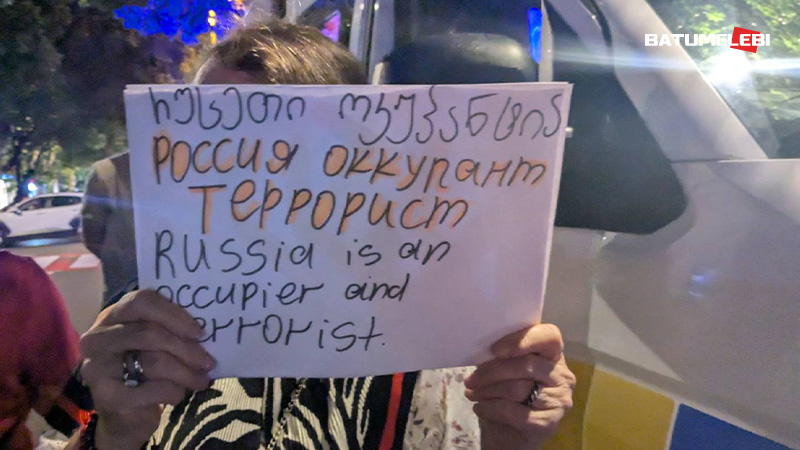 BATUMELEBI
რუსეთი ოკუპანტია
РОССИЯ ОККУПАНТ
ТЕРРОРИСТ
RUSSIA is an
occupier and
terrorist.